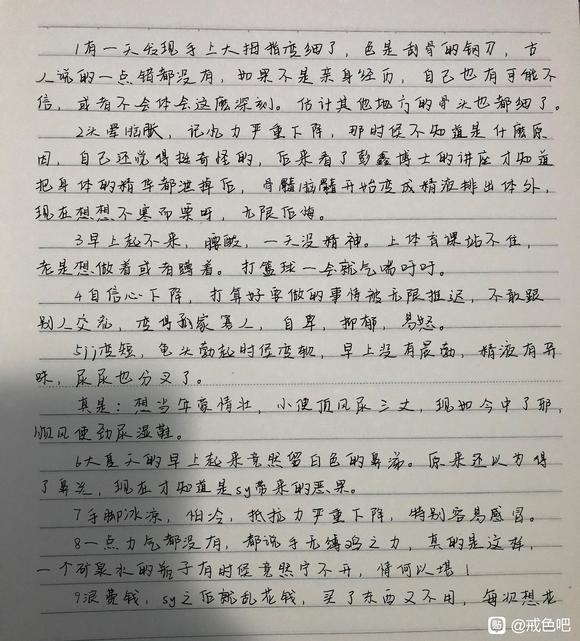 1有一天发现手上大拇指变细了,色是刮骨的钢刀,古
人说的一点错都没有,如果不是亲身经历,自己也有可能不
信,或者不会体会这么深刻。估计其他地方的骨头也都细了。
2头晕脑胀,记忆力严重下降,那时候不知道是什麽原
因,自己还觉得挺奇怪的,后来看了彭鑫博士的讲座才知道
把身体的精华都泄掉后,骨髓脑髓开始变成精液排出体外,
现在想想不寒而栗呀,无限后悔。
3早上起不来,腰酸,一天没精神。上体育课站不住,
老是想做着或者蹲着。打篮球一会就气喘吁吁。
4自信心下降,打算好要做的事情被无限推迟,不敢跟
别人交流,变得孤家寡人,自卑,抑郁,易怒。
5jj变短,龟头勃起时候变软,早上没有晨勃,精液有异
味,尿尿也分叉了。
真是:想当年爱情壮,小便顶风尿三丈,现如今中了邪,
顺风使劲尿湿鞋。
6大夏天的早上起来竟然留白色的鼻涕。原来还以为得
了鼻炎,现在才知道是sy带来的恶果。
7手脚冰凉,怕冷,抵抗力严重下降,特别容易感冒。
8一点力气都没有,都说手无缚鸡之力,真的是这样,
一个矿泉水的瓶子有时候竟然拧不开,情何以堪!
9浪费钱,sy之后就乱花钱,买了东西又不用,每次想花
贴 @戒色吧